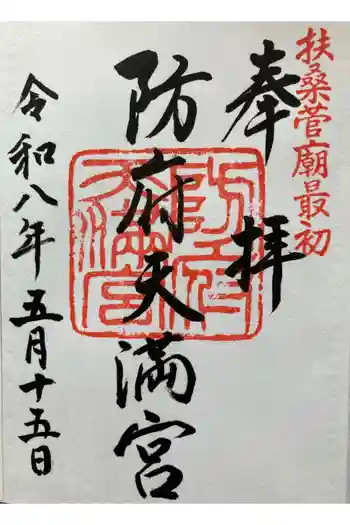 扶桑菅廟最初
奉拝
防府天満宮
防府天満宮
令和八年五月十五日